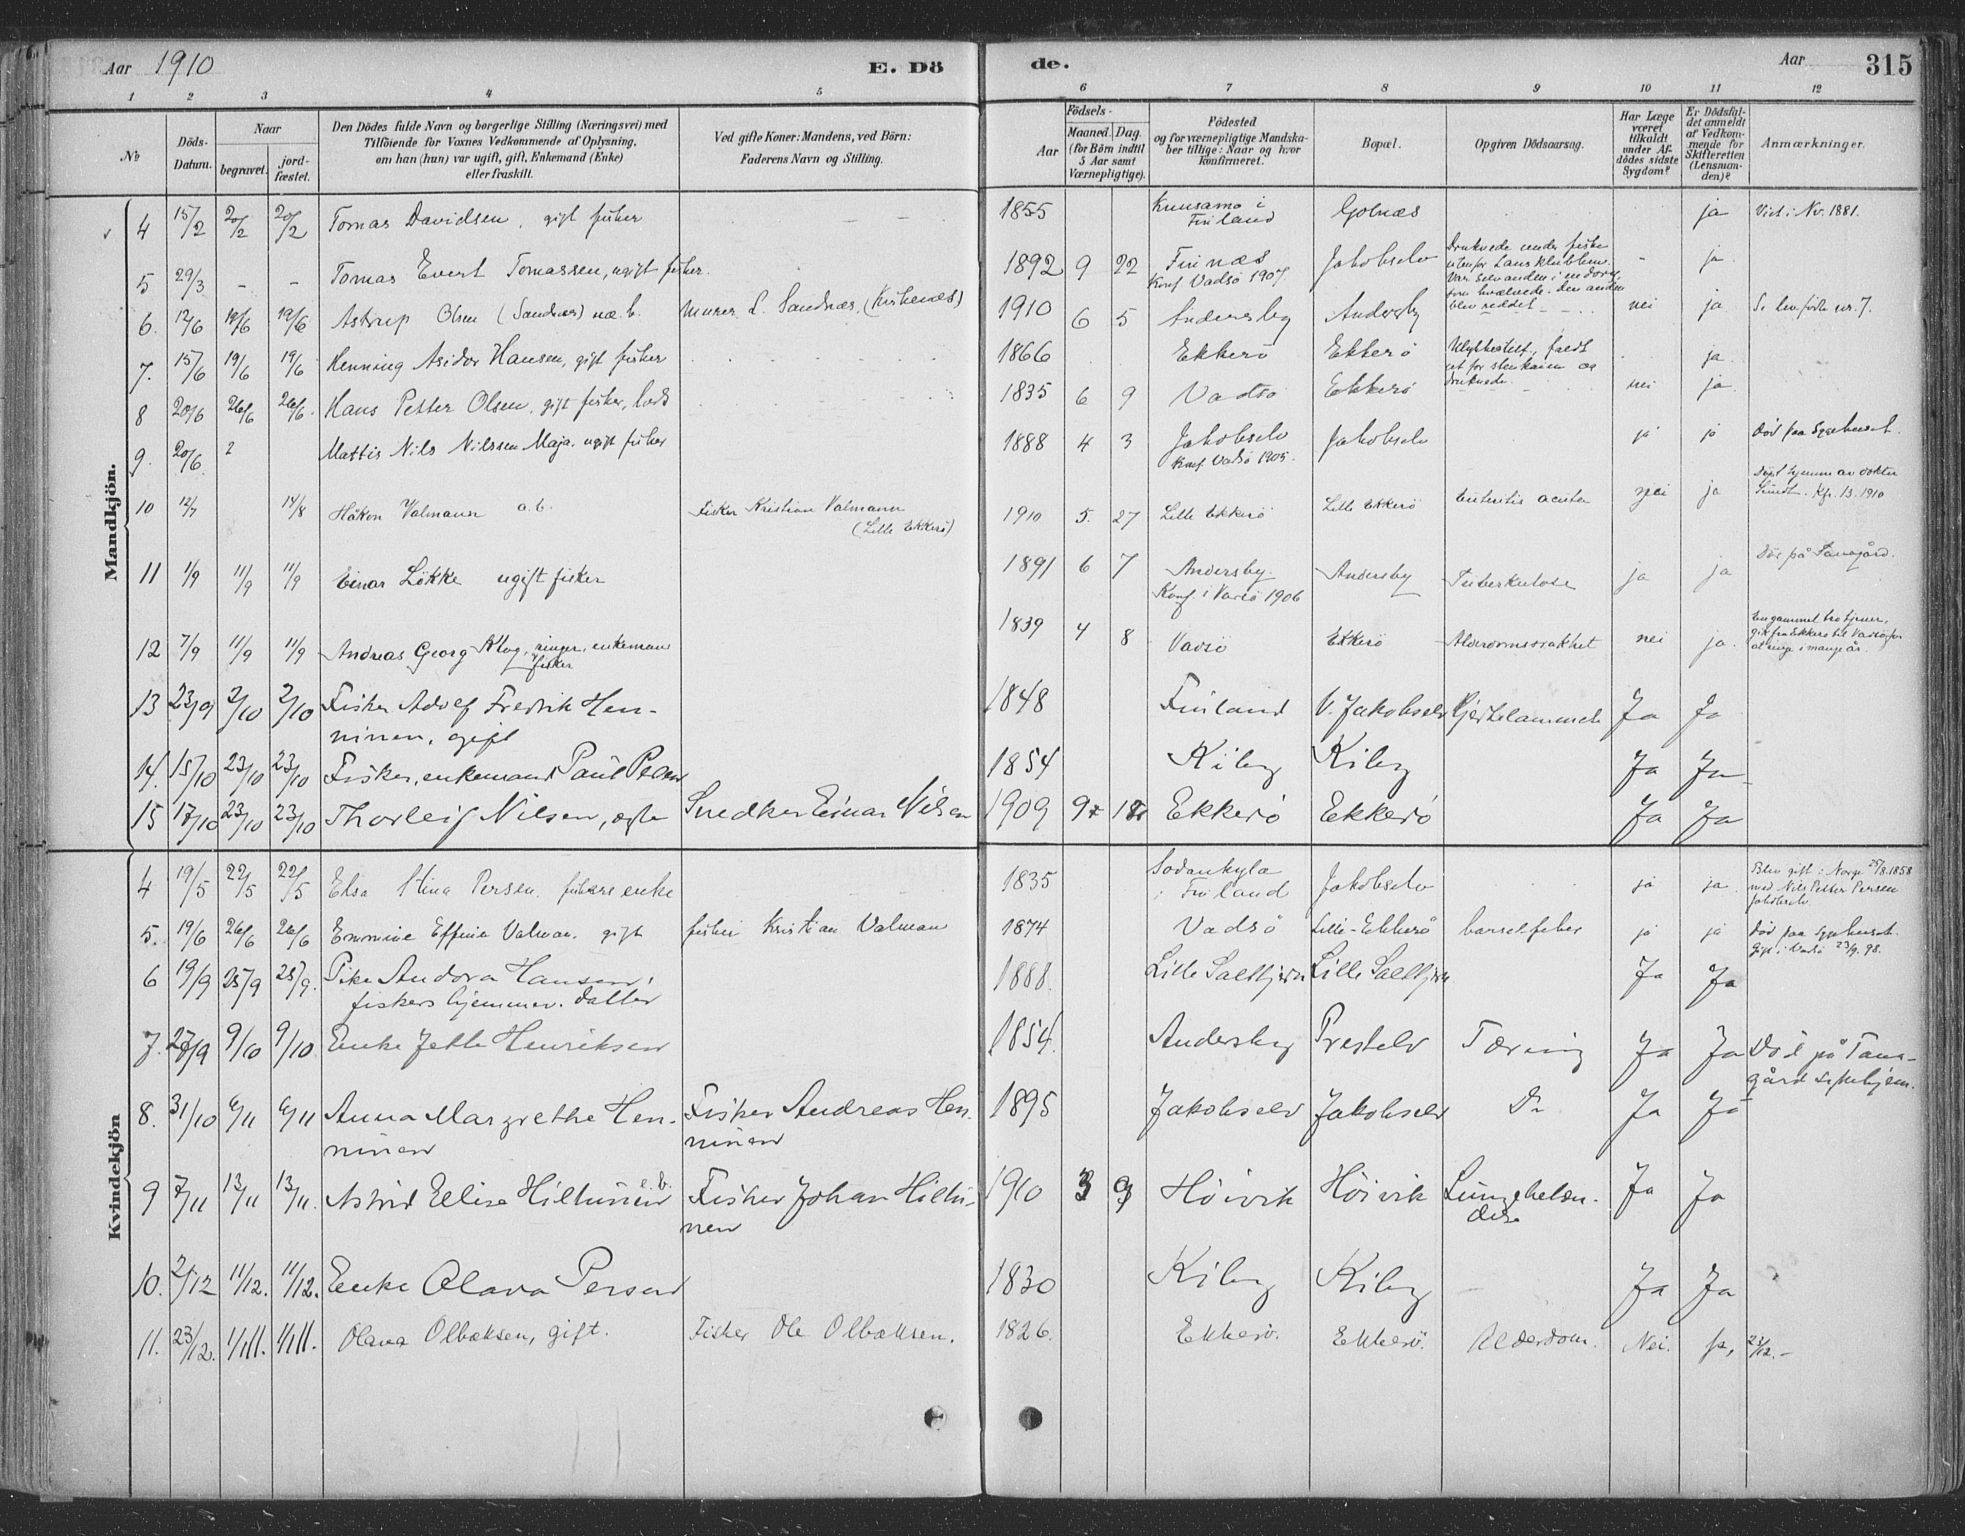 Aar 1910 E. Dö
de. Aar 315
1 2 3 4 5 6 7 8 9 10 11 12
№ Döds-Datum. Naar begravet. jord-fæstet. Den Dödes fulde Navn og borgerlige Stilling (Næringsvei) med Tilföiende for Voxnes Vedkommende af Oplysning, om han (hun) var ugift, gift, Enkemand (Enke) eller fraskilt. Ved gifte Koner: Mandens, ved Börn: Faderens Navn og Stilling. Födsels- Aar Maaned. Dag. (for Börn indtil 5 Aar samt Værnepligtige). Födested og for værnepligtige Mandska-ber tillige: Naar og hvor konfirmeret. Bopæl. Opgiven Dödsaarsag. Har Læge været tilkaldt under Af-dödes sidste Sygdom? Er Dödsfal-det anmeldt af Vedkom-mende for Skifteretten (Lensman-den)? Anmærkninger.
Mandkjön.
4 15/2 20/2 20/2 Tomas Davidsen, gift fisker 1855 Kuusamo i Finland Golnæs ja Viet i Nv. 1881.
5 29/3 - - Tomas Evert Tomassen, ugift fisker. 1892 9 22 Finnæs Konf Vadsö 1907 Jakobselv Druknede under fiske - ja
6. 12/6 19/6 19/6 Astrup Olsen (Sandnæs) u.æ.b. Murer L. Sandnæs, (Kirkenæs) 1910 6 5 Andersby Andersby nei ja Se lev. fødte nr. 7.
7. 15/6 19/6 19/6 Henning Asidor Hansen, gift fisker 1866 Ekkerö Ekkerö Ulykkestilf, faldt ut for stenkaien og druknede ja
8 20/6 26/6 26/6. Hans Petter Olsen, gift fisker, lods 1835 6 9 Vadsö Ekkerö nei ja
9. 20/6. Mattis Nils Nilssen Maja. ugift fisker 1888 4 3 Jakobselv Konf. Vadsö 1905. Jakobselv ja ja Död paa Sygehuset.
10 12/7 14/8 Håkon Valmann Fisker Kristian Valmann (Lille Ekkerö) 1910 5. 27 Lille Ekkerö Lille Ekkerö Enteritis acuta nei ja Döpt hjemme av doktor
11 1/9 11/9 11/9 Einar Løkke ugift fisker 1891 6 7 Andersby. Konf. i Vadsö 1906 Andersby Tuberkulose ja ja Dör på Tanagård.
12 7/9 11/9 11/9 Andreas Georg Klog, ringer, enkeman fisker 1839 4 8 Vadsö Ekkerö Alderdomssvakhet nei ja. En gammel tro tjener, gik fra Ekkerö til Vadsö for at ringe i mange år.
13 23/9 2/10 2/10 Fisker Adolf Fredrik Hen-ninen, gift 1848 Finland V. Jakobselv Hjertelammelse Ja Ja
14. 15/10 23/10 23/10 Fisker, enkemand Paul Peder 1854 Kiby Kiby Ja Ja
15 17/10 23/10 23/10 Thorleif Nilsen, ægte Snedker Einar Nilsen 1909 9 18 Ekkerö Ekkerö Ja Ja
Kvindekjön
4 19/5 22/5 22/5 Elsa Stina Persen. fiskers enke 1835 Sodankyla i Finland Jakobselv ja ja Blev gift i Norge 25/8.1858 med Nils Petter Persen Jakobselv.
5. 19/6 26/6 26/6 Emmine Effine Valman. gift fisker Kristian Valman 1874 Vadsö Lille-Ekkerö barselfeber ja ja Död paa Sygehuset. Gift i Vadsö 23/9. 98.
6 19/9 25/9 25/9. Pike Andora Hansen, fiskers hjemmev. datter 1888. Lille Saltkjern Lille Saltkjern Ja Ja
7. 27/9 9/10 9/10 Enke Jette Henriksen 1854. Andersby Prestelv Tæring Ja Ja Död på Tana-gård sykehjem.
8. 31/10 6/11 6/11 Anna Margrethe Hen-ninen Fisker Andreas Hen-ninen 1895 Jakobselv Jakobselv Do Ja Ja
9 7/11 13/11 13/11. Astrid Elise Hiltunen e.b. Fisker Johan Hiltu-nen 1910 3 9 Höivik Höivik Lungebetæn-delse Ja Ja
10. 2/12 11/12. 11/12. Enke Olava Persen 1830 Kiby Kiby Ja Ja
11. 23/12. 1/111. 1/111. Olava Olbaksen, gift. Fisker Ole Olbaksen. 1826. Ekkerö. Ekkerö. Alderdom. Nei. Ja, 23/12.-